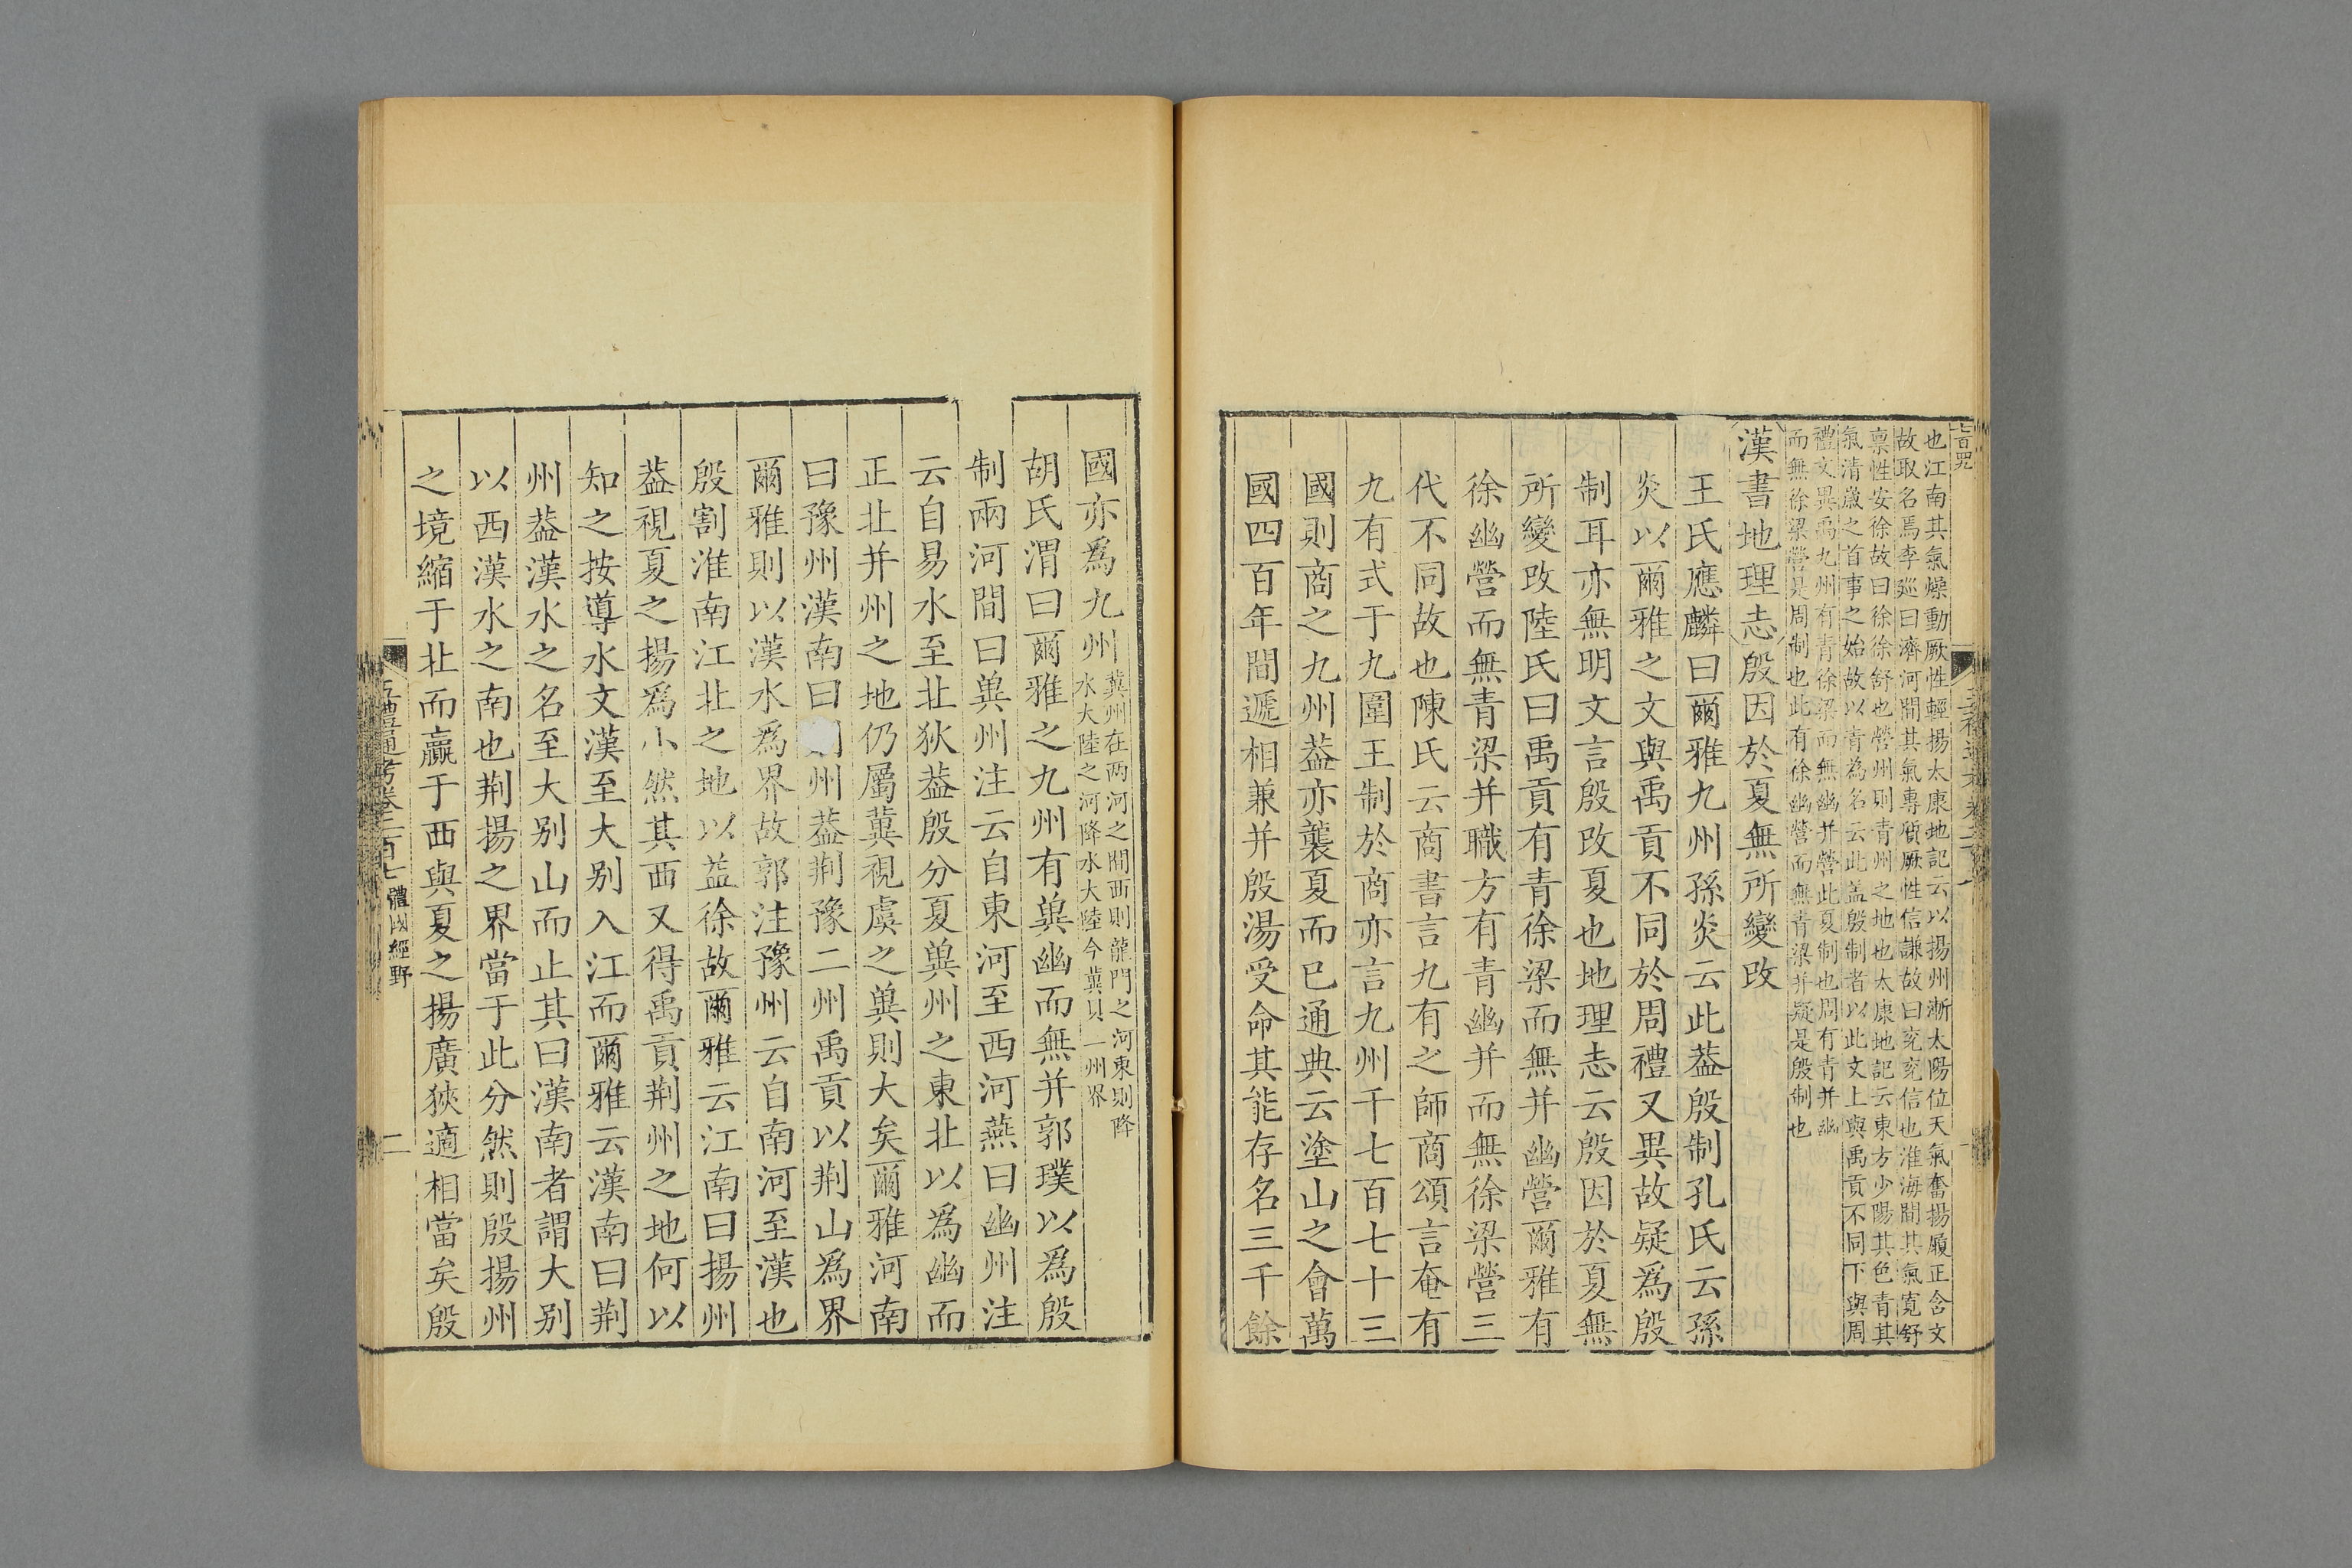 也江南其氣燥動厥性輕揚太康地記云以揚州漸太陽位天氣奮揚履正含文
故取名焉李巡曰濟河間其氣專質厥性信謙故曰兖兖信也淮海間其氣寛舒
禀性安徐故曰徐徐舒也營州則青州之地也太康地記云東方少陽其色青其
氣清歲之首事之始故以青為名云此盖殷制者以此文上與禹貢不同下與周
禮文異禹九州有青徐梁而無幽并營此夏制也周有青并幽
而無徐梁營是周制也此有徐幽營而無青梁并疑是殷制也
漢書地理志殷因於夏無所變改
王氏應麟曰爾雅九州孫炎云此葢殷制孔氏云孫
炎以爾雅之文與禹貢不同於周禮又異故疑爲殷
制耳亦無明文言殷改夏也地理志云殷因於夏無
所變改陸氏曰禹貢有青徐梁而無并幽營爾雅有
徐幽營而無青梁并職方有青幽并而無徐梁營三
代不同故也陳氏云商書言九有之師商頌言奄有
九有式于九圍王制於商亦言九州千七百七十三
國則商之九州葢亦襲夏而已通典云塗山之會萬
國四百年間遞相兼并殷湯受命其能存名三千餘
國亦爲九州
冀州在两河之間西則龍門之河東則降
水大陸之河降水大陸今冀一州界
胡氏渭曰爾雅之九州有兾幽而無并郭璞以爲殷
制兩河間曰兾州注云自東河至西河燕曰幽州注
云自易水至北狄葢殷分夏兾州之東北以爲幽而
正北并州之地仍屬冀視虞之兾則大矣爾雅河南
曰豫州漢南曰州葢荆豫二州禹貢以荆山爲界
爾雅則以漢水爲界故郭注豫州云自南河至漢也
殷割淮南江北之地以益徐故爾雅云江南曰揚州
葢視夏之揚爲小然其西又得禹貢荆州之地何以
知之按導水文漢至大别入江而爾雅云漢南曰荆
州葢漢水之名至大别山而止其曰漢南者謂大别
以西漢水之南也荆揚之界當于此分然則殷揚州
之境縮于北而贏于西與夏之揚廣狹適相當矣殷
五禮通考卷二百七 體國經野 二